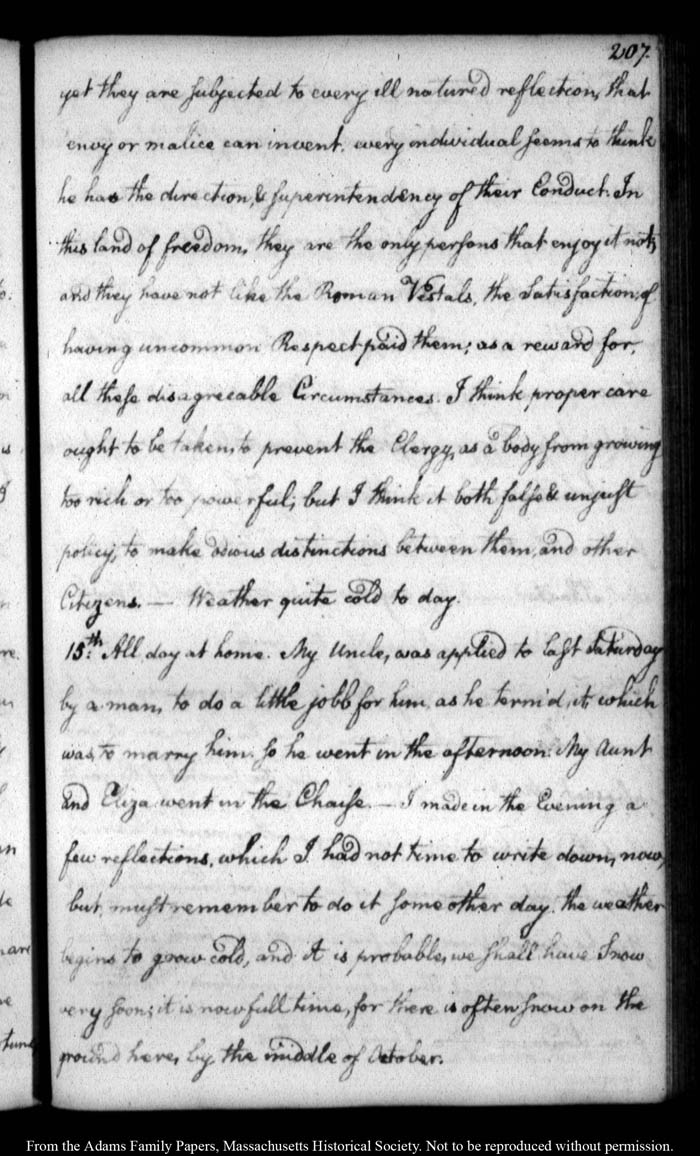 207.
yet they are subjected to every ill natured reflection, that
envy or malice can invent. every individual seems to think
he has the direction, & superintendency of their Conduct. In
this land of freedom, they are the only persons that enjoy it not;
and they have not like the Roman Vestals, the Satisfaction, of
having uncommon Respect paid them; as a reward for,
all these disagreeable Circumstances. I think proper care
ought to be taken, to prevent the Clergy, as a body from growing
too rich or too powerful; but I think it both false & unjust
policy, to make odious distinctions between them, and other
Citizens. — Weather quite cold to day.
15th. All day at home. My Uncle, was applied to last Saturday
by a man, to do a little jobb for him, as he term'd, it, which
was, to marry him. So he went in the afternoon. My Aunt
and Eliza went in the Chaise. — I made in the Evening a
few reflections, which I had not time to write down, now,
but must remember to do it some other day. the weather
begins to grow cold, and it is probable, we shall have Snow
very soon; it is now full time, for there is often snow on the
ground here, by the middle of October.
From the Adams Family Papers, Massachusetts Historical Society. Not to be reproduced without permission.